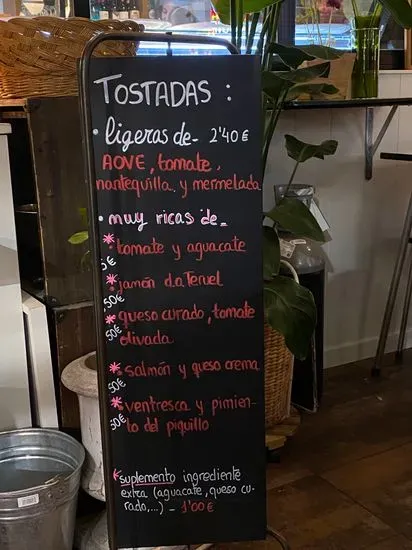 TOSTADAS :
· ligeras de_ 2'40€
AOVE, tomate,
mantequilla y mermelada
· muy ricas de_
* tomate y aguacate
5€
* jamón d.o Teruel
50€
* queso curado, tomate
50€ olivada
* salmón y queso crema
50€
* ventresca y pimien-
50€ to del piquillo
* suplemento ingrediente
extra (aguacate, queso cu-
rado,...) - 1'00€